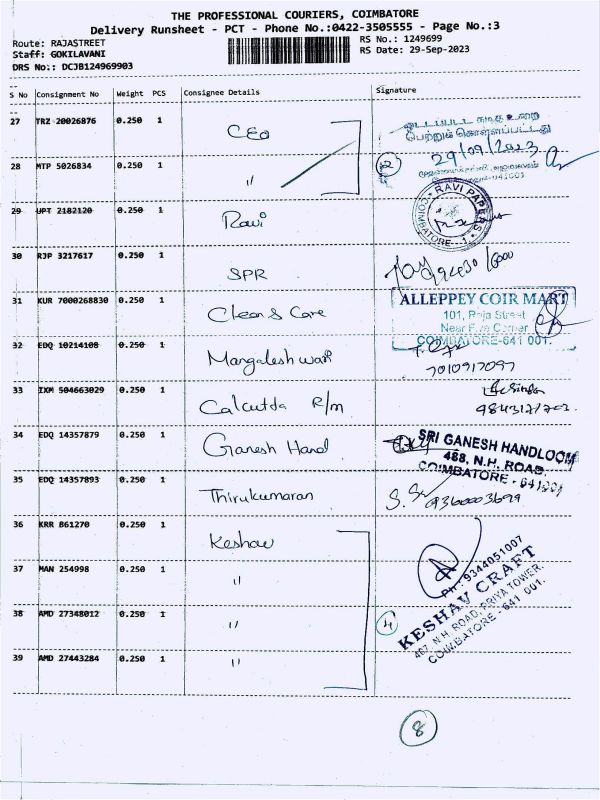 THE PROFESSIONAL COURIERS, COIMBATORE
Delivery Runsheet - PCT - Phone No.:0422-3505555 - Page No.:3
Route: RAJASTREET
RS No.: 1249699
Staff: GOKILAVANI
RS Date: 29-Sep-2023
DRS No.: DCJB124969903
S No Consignment No Weight PCS Consignee Details Signature
27 TRZ 20026876 0.250 1 CEO
பெற்றுக் கொள்ளப்பட்டது
29/09/2023
28 MTP 5026834 0.250 1 "
2
29 UPT 2182120 0.250 1 Ravi
RAVI PAPERS
COIMBATORE - 1.
30 RJP 3217617 0.250 1 SPR
31 KUR 7000268830 0.250 1 Clean & Care
ALLEPPEY COIR MART
101, Raja Street
Near Five Corner
COIMBATORE-641 001.
32 EDQ 10214108 0.250 1 Mangaleshwari
7010917097
33 IXM 504663029 0.250 1 Calcutta R/m
34 EDQ 14357879 0.250 1 Ganesh Hand
SRI GANESH HANDLOOM
488, N.H. ROAD,
COIMBATORE - 641001
35 EDQ 14357893 0.250 1 Thirukumaran
9360003699
36 KRR 861270 0.250 1 Keshav
37 MAN 254998 0.250 1 "
38 AMD 27348012 0.250 1 "
4
Ph : 9344051007
KESHAV CRAFT
467, N.H. ROAD, PRIYA TOWER,
COIMBATORE - 641 001.
39 AMD 27443284 0.250 1 "
8